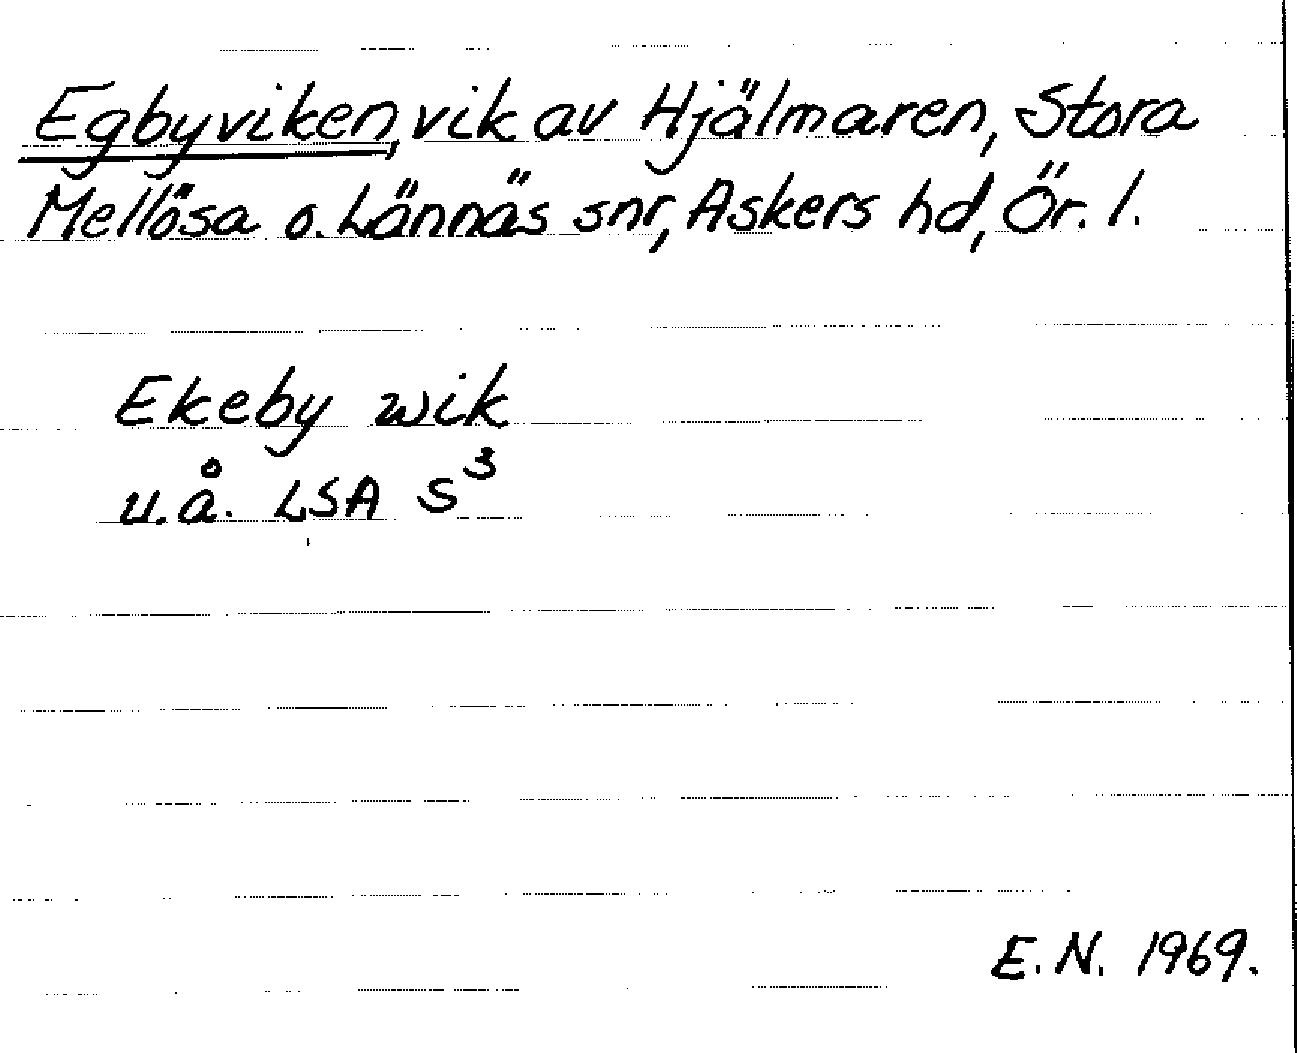 Egbyviken, vik av Hjälmaren, Stora
Mellösa o. Lännäs snr, Askers hd, Ör. l.
Ekeby wik
u.å. LSA S³
E.N. 1969.